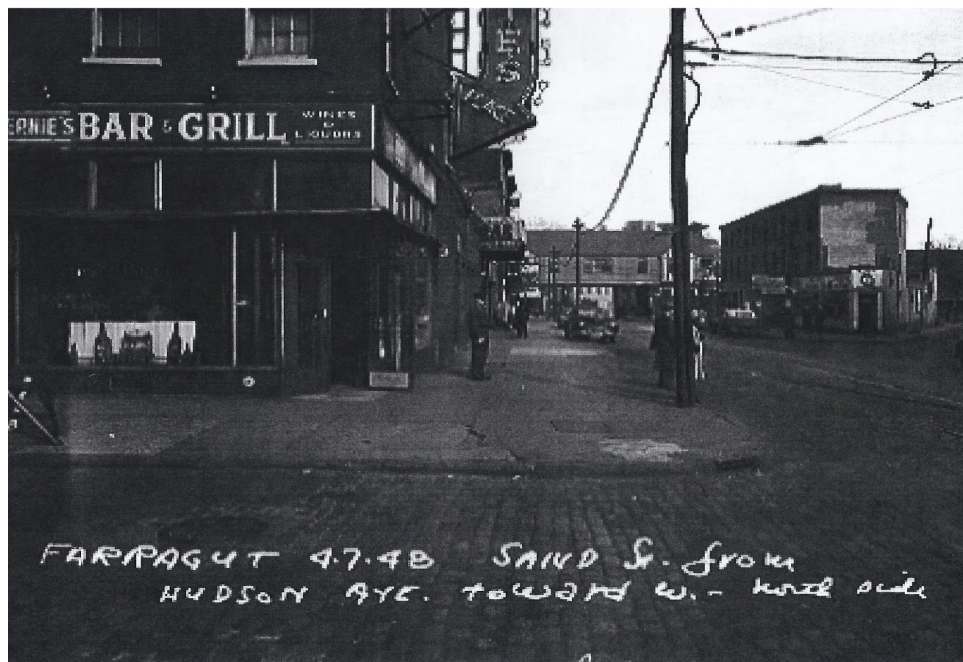 ERNIE'S BAR & GRILL WINES & LIQUORS
FARRAGUT 4.7.48 SAND St. from
HUDSON AVE. toward w. - north side